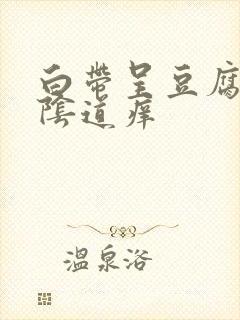 白带呈豆腐
陰道痒
温泉浴